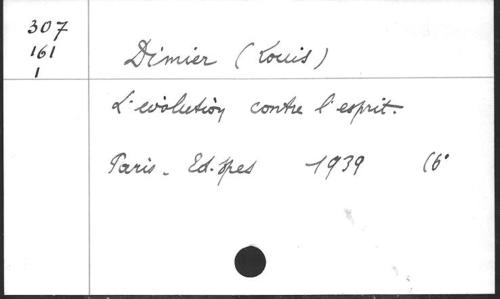 307
161
1
Dimier (Louis)
L'evolution contre l'esprit.
Paris. Ed. Spes 1939 (6°